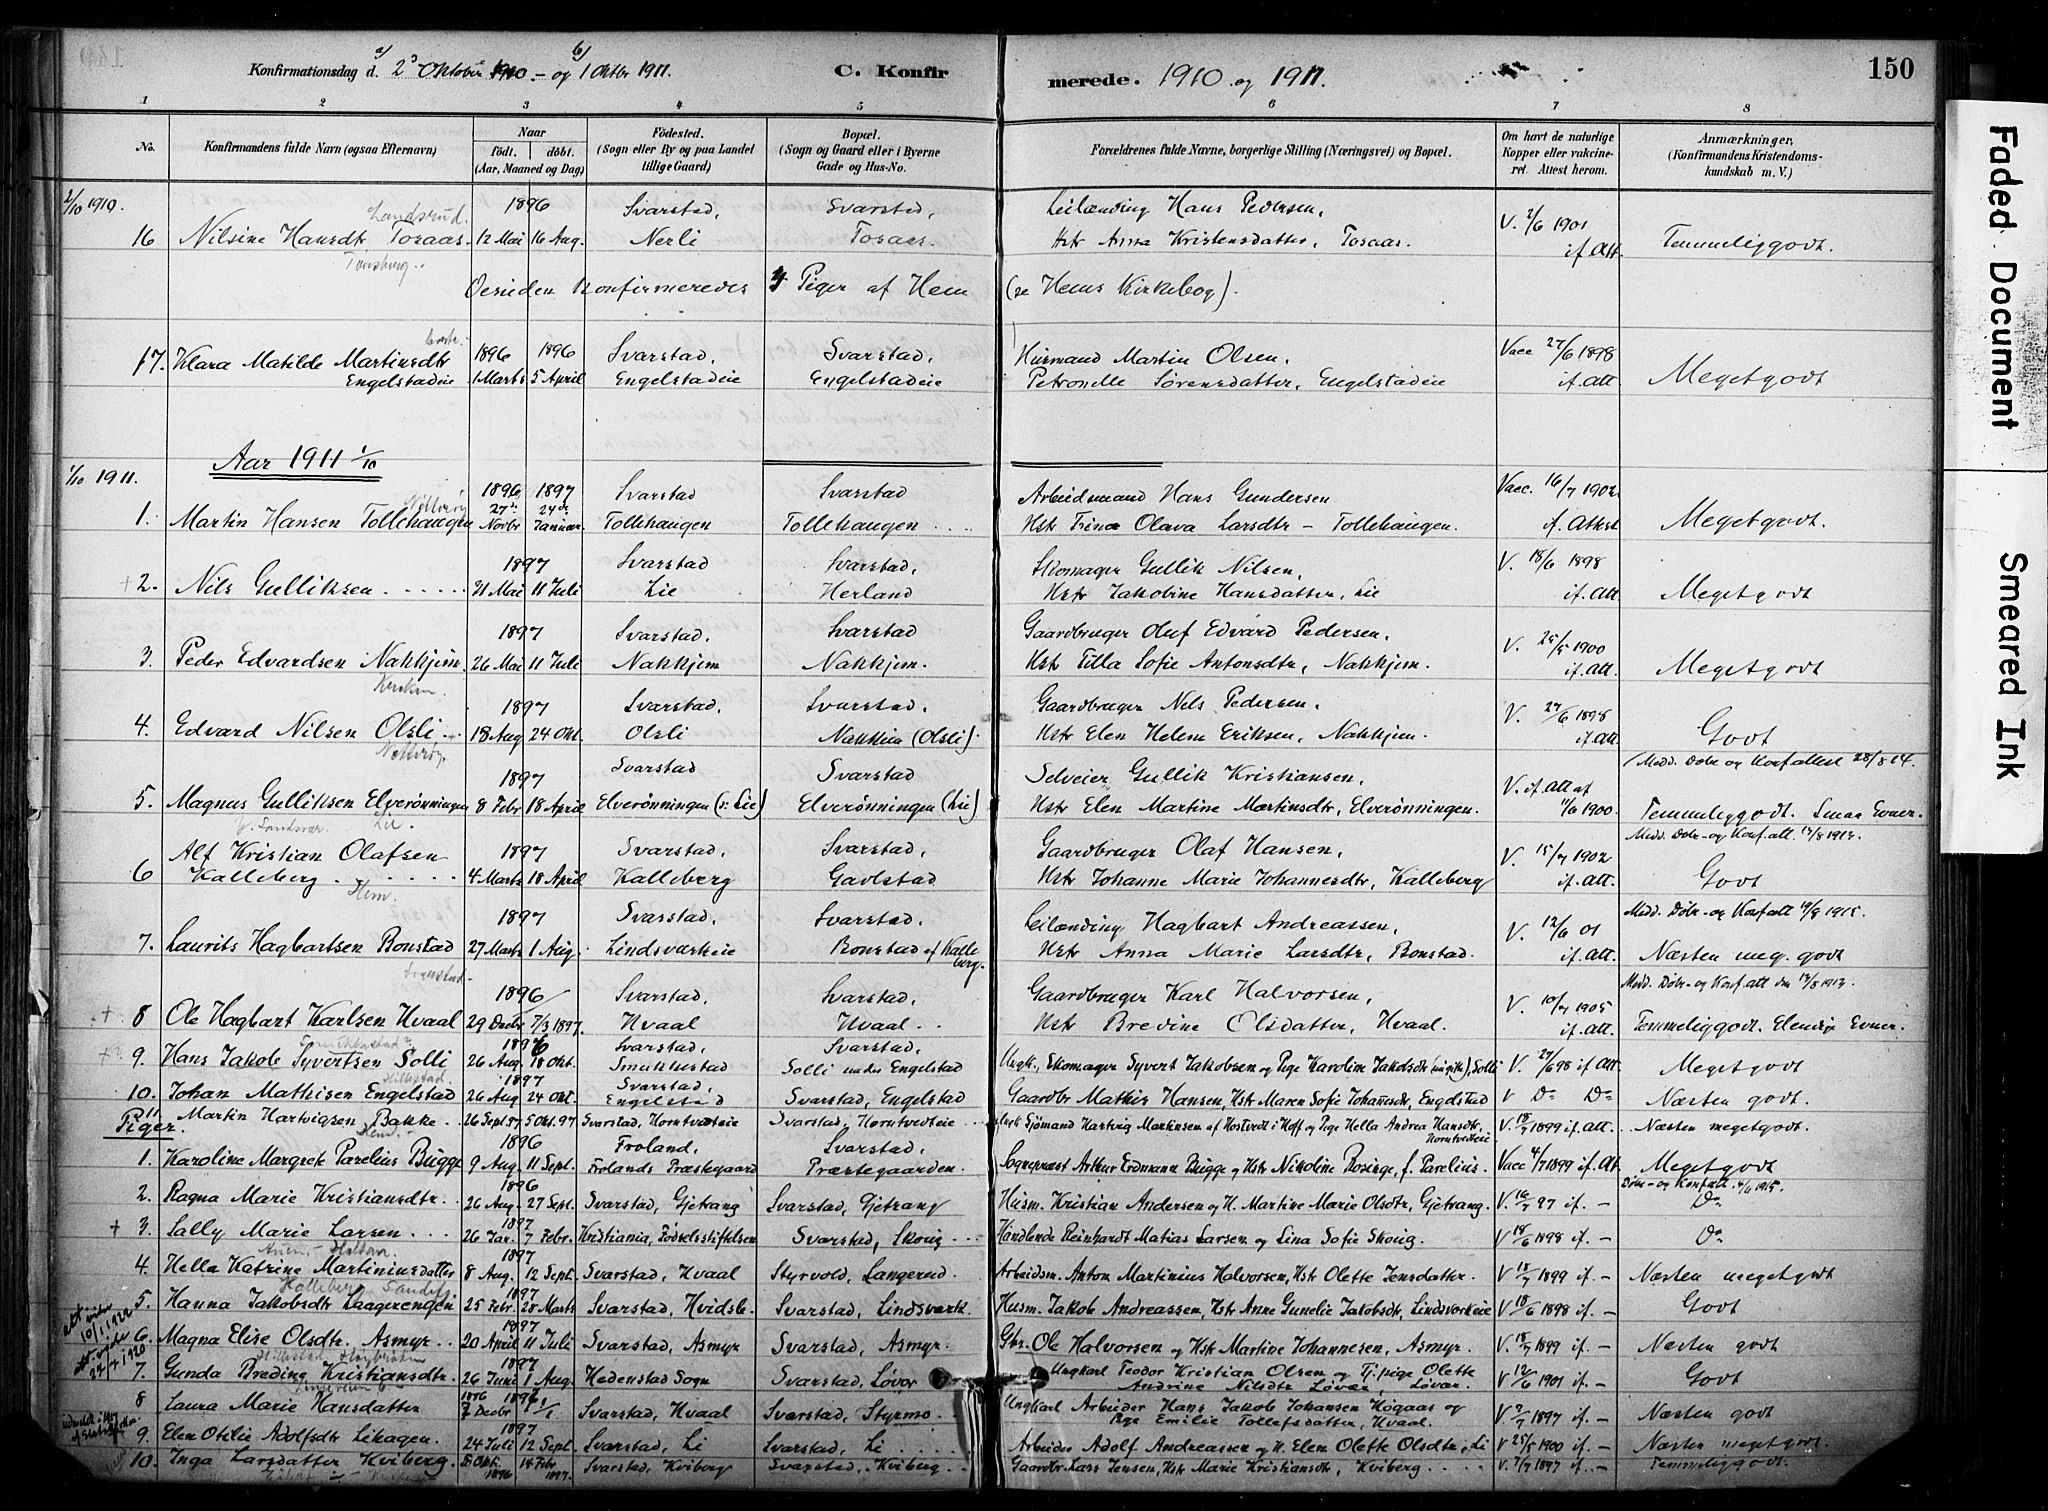 a) b)
Konfirmationsdag d. 2 Oktober 1910 - og 1 Oktbr 1911. C. Konfirmerede. 1910 og 1911. 150
1 2 3 4 5 6 7 8
No. Konfirmandens fulde Navn (ogsaa Efternavn)
Naar
födt. döbt.
(Aar, Maaned og Dag)
Födested.
(Sogn eller By og paa Landet
tillige Gaard)
Bopæl.
(Sogn og Gaard eller i Byerne
Gade og Hus-No.
Forældrenes fulde Navne, borgerlige Stilling (Næringsvei) og Bopæl.
Om havt de naturlige
Kopper eller vakcine-
ret. Attest herom.
Anmærkninger.
(Konfirmandens Kristendoms-
kundskab m. V.)
2/10 1910. Landsrud. 1896 Svarstad, Svarstad, Leilænding Hans Pedersen, V. 2/6 1901
16 Nilsine Hansdtr Tosaas. 12 Mai 16 Aug. Nerli Tosaas. Hstr Anna Kristensdatter, Tosaas. if Att. Temmeliggodt.
Tønsberg.
Desuden Konfirmeredes 4 Piger af Hem (se Hems Kirkebog).
17. Klara Matilde Martinsdtr 1896 1896 Svarstad, Svarstad, Husmand Martin Olsen, Vacc 27/6 1898
Engelstadeie 1 Marts 5 April Engelstadeie Engelstadeie Petronelle Sørensdatter, Engelstadeie if. Att. Megetgodt
Aar 1911 1/10
1/10 1911. 1896 1897 Svarstad Svarstad Arbeidsmand Hans Gundersen Vacc. 16/7 1902
1. Martin Hansen Tollehaugen 27de Novbr 24de Januar Tollehaugen Tollehaugen Hstr Trine Olava Larsdtr - Tollehaugen. if. Attest Megetgodt.
1897 Svarstad Svarstad, Skomager Gullik Nilsen, V. 18/6 1898
+ 2. Nils Gulliksen 31 Mai 11 Juli Lie Herland Hstr Jakobine Hansdatter, Lie if. Att. Megetgodt
1897 Svarstad, Svarstad Gaardbruger Oluf Edvard Pedersen, V. 25/5 1900
3. Peder Edvardsen Nakkjem. 26 Mai 11 Juli Nakkjem Nakkjem. Hstr Tilla Sofie Antonsdtr, Nakkjem. if. Att. Megetgodt
1897 Svarstad, Svarstad, Gaardbruger Nels Pedersen, V. 27/6 1898
4. Edvard Nilsen Olsli 18 Aug 24 Okt. Olsli Nakkjem (Olsli) Hstr Elen Helene Eriksen, Nakkjem. if. Att. Godt
Nøtterøy 1897 Svarstad Svarstad Selveier Gullik Kristiansen, V. if. Att af Medd. Døbe og Konfattest 28/8 14.
5. Magnus Gulliksen Elverønningen 8 Febr 18 April Elverønningen (v: Lie) Elverønningen (Lie) Hstr Elen Martine Martinsdtr, Elverønningen. 11/6 1900. Temmeliggodt. Smaa Evner.
Y. Sandsvær. Lie. Medd. Døbe- og Konf. att. 14/8 1913.
Alf Kristian Olafsen 1897 Svarstad, Svarstad, Gaardbruger Olaf Hansen, V. 15/7 1902
6 Kalleberg 4 Marts 18 April Kalleberg Gavlstad Hstr Johanne Marie Johannesdtr, Kalleberg if. att. Godt
Hem. 1897 Svarstad, Svarstad, Leilænding Hagbart Andreassen, V. 12/6 01 Medd. Døbe- og Konf att 17/9 1915.
7. Laurits Hagbartsen Bonstad 27 Marts 1 Aug. Lindsværkeie Bonstad af Kalleberg. Hstr Anna Marie Larsdtr, Bonstad. if. Att. Næsten meg. godt
1896 Svarstad, Svarstad, Gaardbruger Karl Halvorsen, V. 10/7 1905 Medd. Døbe- og Konf. att den 13/8 1913.
+ 8 Ole Hagbart Karlsen Hvaal 29 Decbr 7/3 1897. Hvaal Hvaal Hstr Bredine Olsdatter, Hvaal. if. Att. Temmeliggodt. Elendige Evner.
1896 Svarstad, Svarstad,
9. Hans Jakob Syvertsen Solli 26 Aug. 18 Okt. Smukkestad Solli under Engelstad Ungk., Skomager Syvert Jakobsen og Pige Karoline Jakobsdtr (ugift), Solli V. 27/6 98 if Att. Megetgodt
1897 Svarstad,
10. Johan Mathisen Engelstad 26 Aug 24 Okt. Engelstad Svarstad, Engelstad Gaardbr Mathis Hansen, Hstr Maren Sofie Johannesdtr, Engelstad V Do Do Næsten godt.
11. Martin Hartvigsen Bakke. 26 Sept. 97 5 Okt. 97 Svarstad, Horntvedteie Svarstad, Horntvedteie Ungk Sjömand Hartvig Martinsen af Hostvedt i Hoff og Pige Hella Andrea Hansdtr, Horntvedteie V. 18/7 1899 if. Att. Næsten megetgodt.
Piger. 1896 Froland, Svarstad,
1. Karoline Margrete Parelius Bugge 9 Aug. 11 Sept. Frolands Præstegaard Præstegaarden. Sognepræst Arthur Erdmann Bugge og Hstr Nikoline Rosinge, f. Parelius. Vacc 4/7 1899 if. Att Megetgodt
1896 Døbe- og Konf att. 4/6 1915.
2. Ragna Marie Kristiansdtr. 26 Aug. 27 Sept. Svarstad, Gjetrang Svarstad, Gjetrang Husm. Kristian Andersen og H. Martine Marie Olsdtr, Gjetvang. V. 16/7 97 if. - Do
1897
+ 3. Sally Marie Larsen 26 Jan. 7 Febr. Kristiania, Fødselsstiftelsen Svarstad, Skoug Handlende Reinhardt Matias Larsen og Lina Sofie Skoug. V 18/6 1898 if. - Do
1897
4. Hella Katrine Martiniusdatter 8 Aug. 12 Sept. Svarstad, Hvaal Styrvold, Langerud. Arbeidsm. Anton Martinius Halvorsen, Hstr Olette Jensdatter. V 18/7 1899 if. - Næsten megetgodt
1897
5. Hanna Jakobsdtr Laagerengen 25 Febr. 28 Marts Svarstad, Hvidsb. Svarstad, Lindsværk. Husm. Jakob Andreassen, Hstr Anne Gunelie Jakobsdtr, Lindsværkeie V 18/6 1898 if. - Godt
1897
6. Magna Elise Olsdtr. Asmyr 20 April 11 Juli Svarstad, Asmyr Svarstad, Asmyr. Gbr. Ole Halvorsen og Hstr Martine Johannesen, Asmyr. V. 18/7 1899 if. - Næsten godt
1897
7. Gunda Bredine Kristiansdtr. 26 Juni 1 Aug. Hedenstad Sogn Svarstad, Løvar Ungkarl Teodor Kristian Olsen og Tj. pige Olette Andrine Nilsdtr Løvar, Løvar. V 12/6 1901 if. - Godt
8 Laura Marie Hansdatter 1896 7 Decbr 1897 Svarstad, Hvaal Svarstad, Styrmo Ungkarl Arbeider Hans Jakob Johansen Høgaas og Pige Emilie Tollefsdatter, Hvaal. V 2/7 1897 if. - Næsten godt
1897
9. Elen Otilie Adolfsdtr Lihagen. 24 Juli 12 Sept. Svarstad, Li Svarstad, Li Arbeider Adolf Andreassen og H. Elen Olette Olsdtr, Li V 25/5 1900 if. - Næsten megetgodt.
10. Inga Larsdatter Kviberg. 8 Okt. 1896 14 Febr 1897. Svarstad, Kviberg Svarstad, Kviberg. Gaardbr. Lars Jensen, Hstr Marie Kristiansdtr, Kviberg V. 7/7 1897 if. - Temmeliggodt.
Faded Document
Smeared Ink